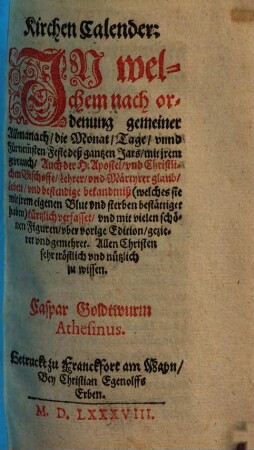 Kirchen Calender:
IN wel-
chem nach or-
denung gemeiner
Allmanach / die Monat / Tage / vnnd
Fürnemsten Feste deß gantzen Jars / mit jrem
gebrauch / Auch der H. Apostel / vnd Christli-
chen Bischoffe / Lehrer / vnd Märtyrer glaub /
leben / vnd bestendige bekandtniß (welches sie
mit jrem eigenen Blut vnd sterben bestättiget
haben) kürtzlich verfasset / vnd mit vielen schö-
nen Figuren / vber vorige Edition / gezie-
ret vnd gemehret. Allen Christen
sehr tröstlich vnd nützlich
zu wissen.
Caspar Goldtwurm
Athesinus.
Getruckt zu Franckfort am Mayn /
Bey Christian Egenolffs
Erben.
M. D. LXXXVIII.